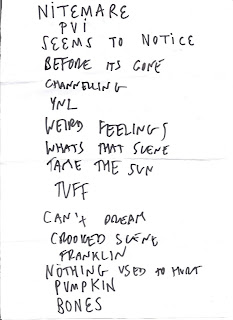 NITEMARE
PVI
SEEMS TO NOTICE
BEFORE ITS GONE
CHANNELLING
YNL
WEIRD FEELINGS
WHATS THAT SCENE
TAME THE SUN
TUFF
CAN'T DREAM
CROOKED SCENE
FRANKLIN
NOTHING USED TO HURT
PUMPKIN
BONES